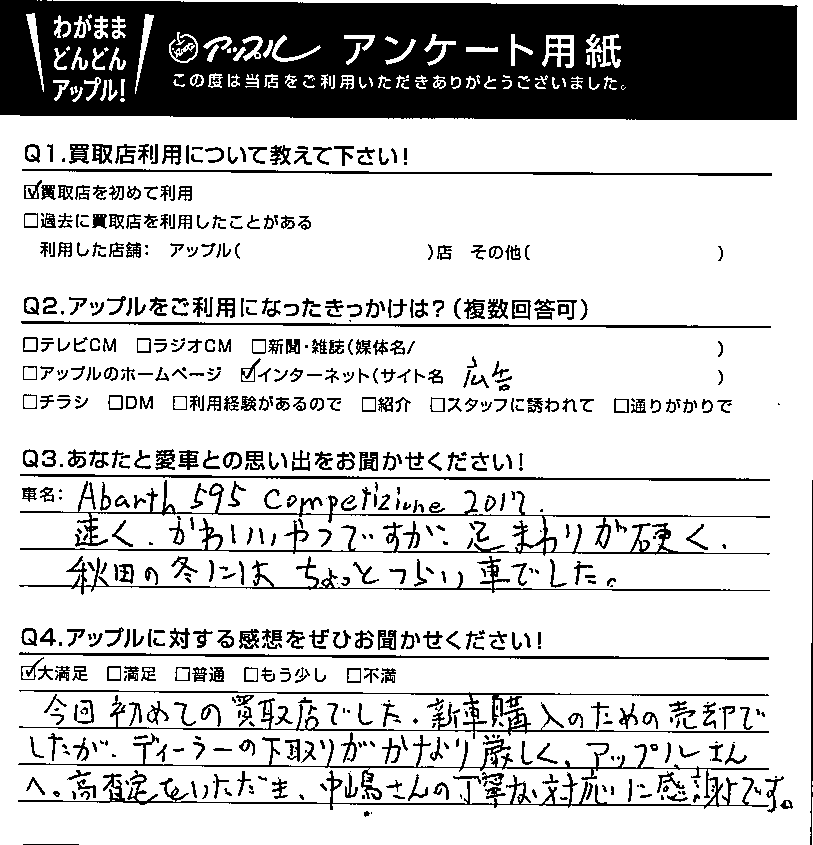 わがまま
どんどん
アップル!
アップル アンケート用紙
この度は当店をご利用いただきありがとうございました。
Q1.買取店利用について教えて下さい!
☑買取店を初めて利用
□過去に買取店を利用したことがある
利用した店舗: アップル( )店 その他( )
Q2.アップルをご利用になったきっかけは?(複数回答可)
□テレビCM □ラジオCM □新聞・雑誌(媒体名/ )
□アップルのホームページ ☑インターネット(サイト名 広告 )
□チラシ □DM □利用経験があるので □紹介 □スタッフに誘われて □通りがかりで
Q3.あなたと愛車との思い出をお聞かせください!
車名: Abarth 595 Competizione 2017.
速く、かわいいやつですが、足まわりが硬く、
秋田の冬には ちょっとつらい車でした。
Q4.アップルに対する感想をぜひお聞かせください!
☑大満足 □満足 □普通 □もう少し □不満
今回初めての買取店でした。新車購入のための売却で
したが、ディーラーの下取りがかなり厳しく、アップルさん
へ。高査定をいただき、中嶋さんの丁寧な対応に感謝です。